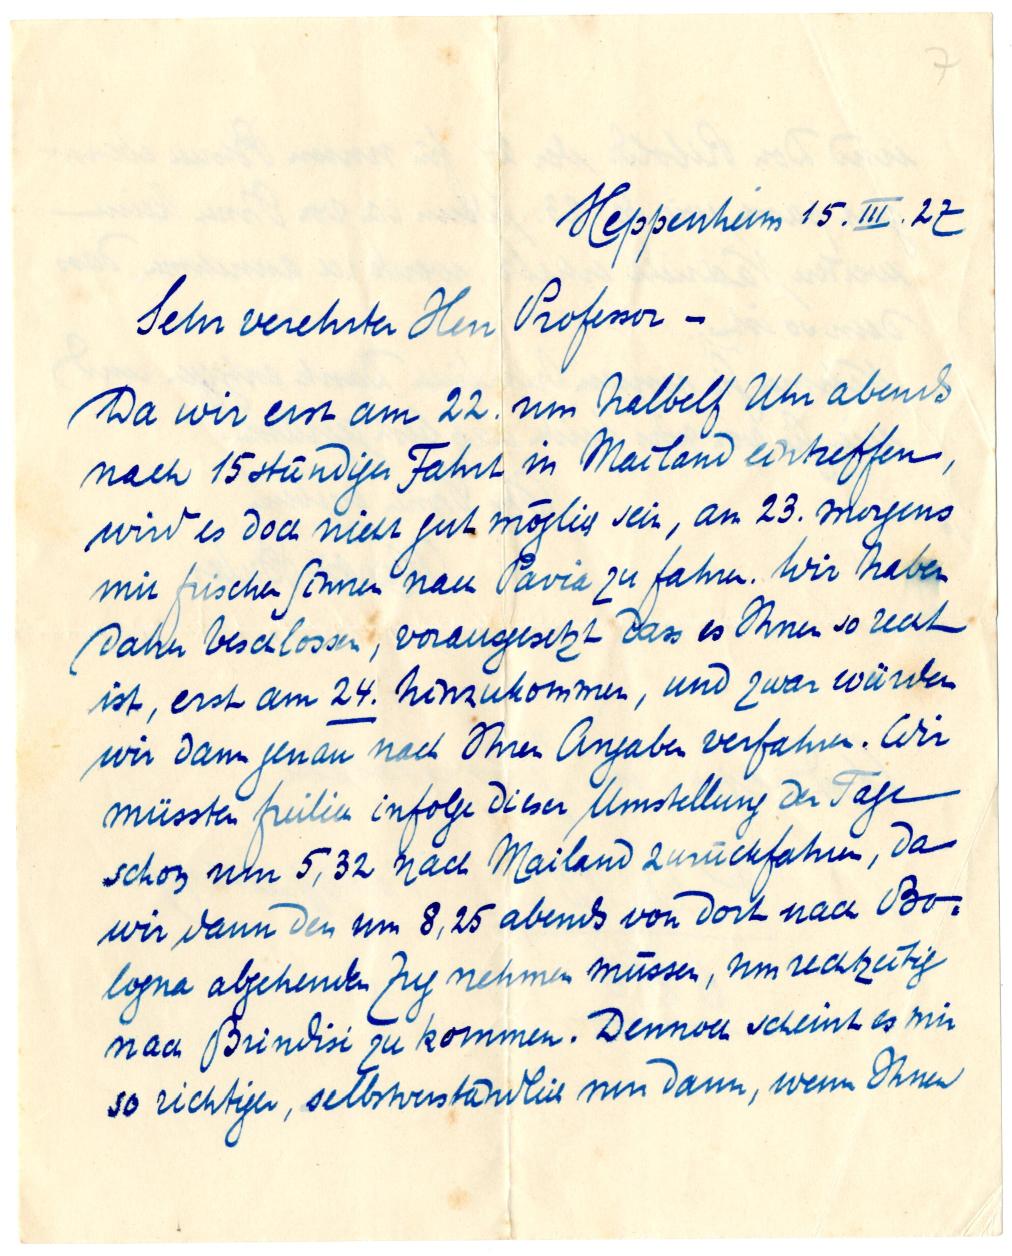 7
Heppenheim 15. III. 27
Sehr verehrter Herr Professor –
Da wir erst am 22. um halbelf Uhr abends
nach 15stündiger Fahrt in Mailand eintreffen,
wird es doch nicht gut möglich sein, am 23. morgens
mit frischen Sinnen nach Pavia zu fahren. Wir haben
daher beschlossen, vorausgesetzt dass es Ihnen so recht
ist, erst am 24. hinzukommen, und zwar würden
wir dann genau nach Ihren Angaben verfahren. Wir
müssten freilich infolge dieser Umstellung der Tage
schon um 5,32 nach Mailand zurückfahren, da
wir dann den um 8,25 abends von dort nach Bo-
logna abgehenden Zug nehmen müssen, um rechtzeitig
nach Brindisi zu kommen. Dennoch scheint es mir
so richtiger, selbstverständlich nur dann, wenn Ihnen